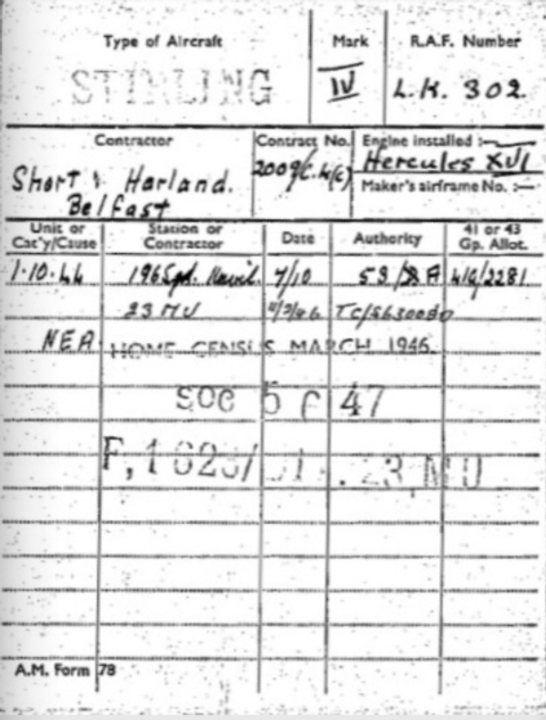 Type of Aircraft Mark R.A.F. Number
STIRLING IV L.K. 302.
Contractor Contract No. Engine installed :—
Short & Harland. Hercules XVI
Belfast Maker's airframe No. :—
Unit or Cat'y/Cause Station or Contractor Date Authority 41 or 43 Gp. Allot.
1.10.44 196 Sqd. 7/10 41G/2281
23 MU
NEA HOME CENSUS MARCH 1946.
SOC 5 47
23 MU
A.M. Form 78